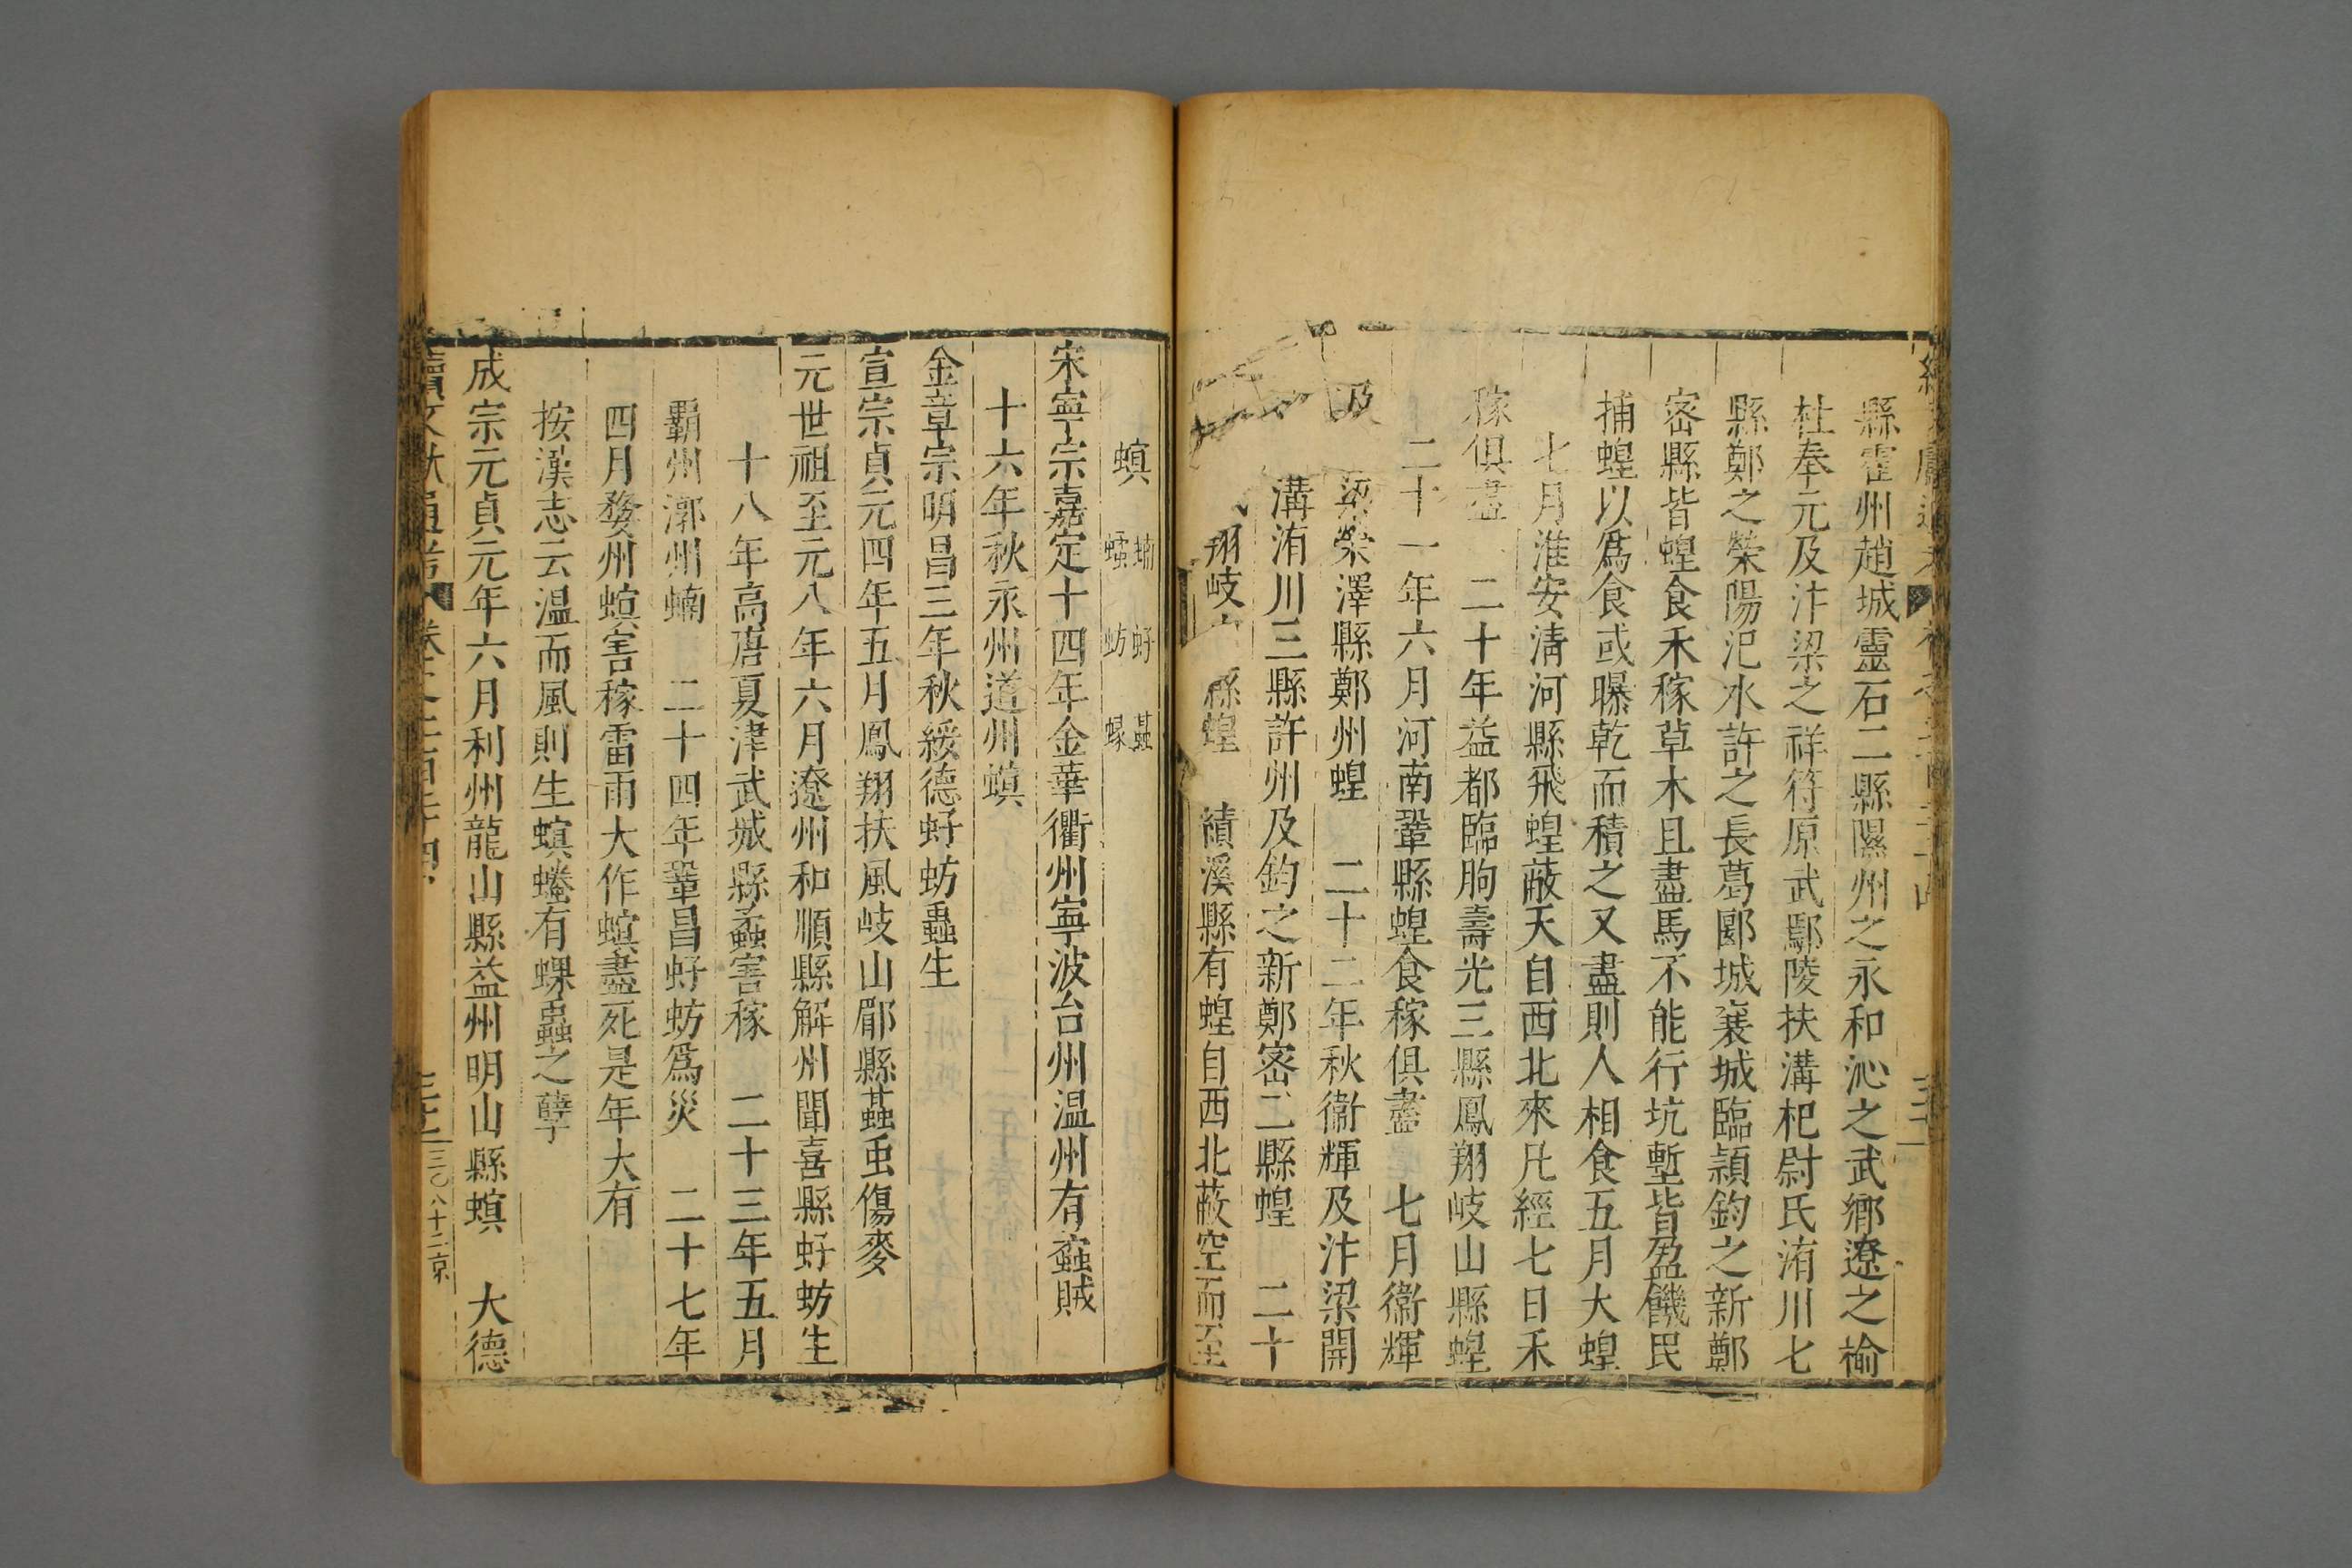 縣霍州趙城靈石二縣隰州之永和沁之武鄉遼之榆
社奉元及汴梁之祥符原武鄢陵扶溝杞尉氏洧川七
縣鄭之榮陽汜水許之長葛郾城襄城臨潁鈞之新鄭
密縣皆蝗食禾稼草木且盡馬不能行坑塹皆盈饑民
捕蝗以爲食或曝乾而積之又盡則人相食五月大蝗
七月淮安清河縣飛蝗蔽天自西北來凡經七日禾
稼俱盡 二十年益都臨朐壽光三縣鳳翔岐山縣蝗
二十一年六月河南鞏縣蝗食稼俱盡 七月衞輝
及 榮澤縣鄭州蝗 二十二年秋衞輝及汴梁開
溝洧川三縣許州及鈞之新鄭密二縣蝗 二十
翔岐 縣蝗 績溪縣有蝗自西北蔽空而至
螟 蝻 蝗 蚄 蟊 蝝
宋寧宗嘉定十四年金華衢州寧波台州温州有螽賊
十六年秋永州道州螟
金章宗明昌三年秋綏德虸蚄蟲生
宣宗貞元四年五月鳳翔扶風岐山郿縣蟊虫傷麥
元世祖至元八年六月遼州和順縣解州聞喜縣虸蚄生
十八年高唐夏津武城縣蟊害稼 二十三年五月
霸州漷州蝻 二十四年鞏昌虸蚄爲災 二十七年
四月婺州螟害稼雷雨大作螟盡死是年大有
按漢志云温而風則生螟螣有蜾蟲之孽
成宗元貞元年六月利州龍山縣益州明山縣螟 大德
續文獻通考